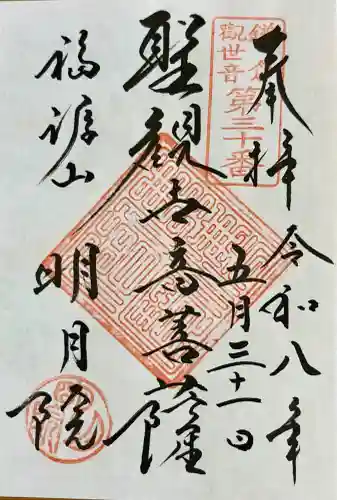 奉拝
鎌倉
觀世音
第三十番
令和八年
五月三十一日
聖観世音菩薩
福源山
明月院